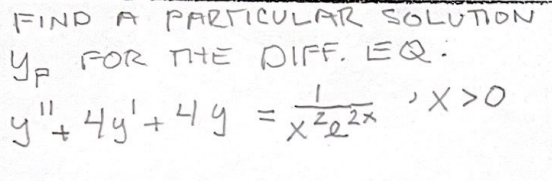 FIND A PARTICULAR SOLUTION
y_p FOR THE DIFF. EQ:
y'' + 4y' + 4y = 1/(x²e^{2x}) , x > 0